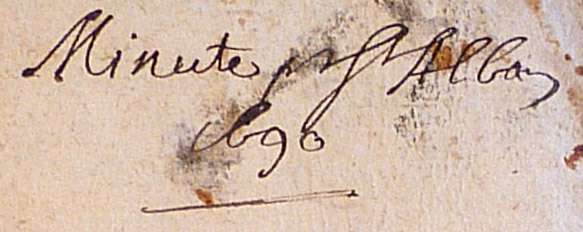 Minute pr St Alban
1690